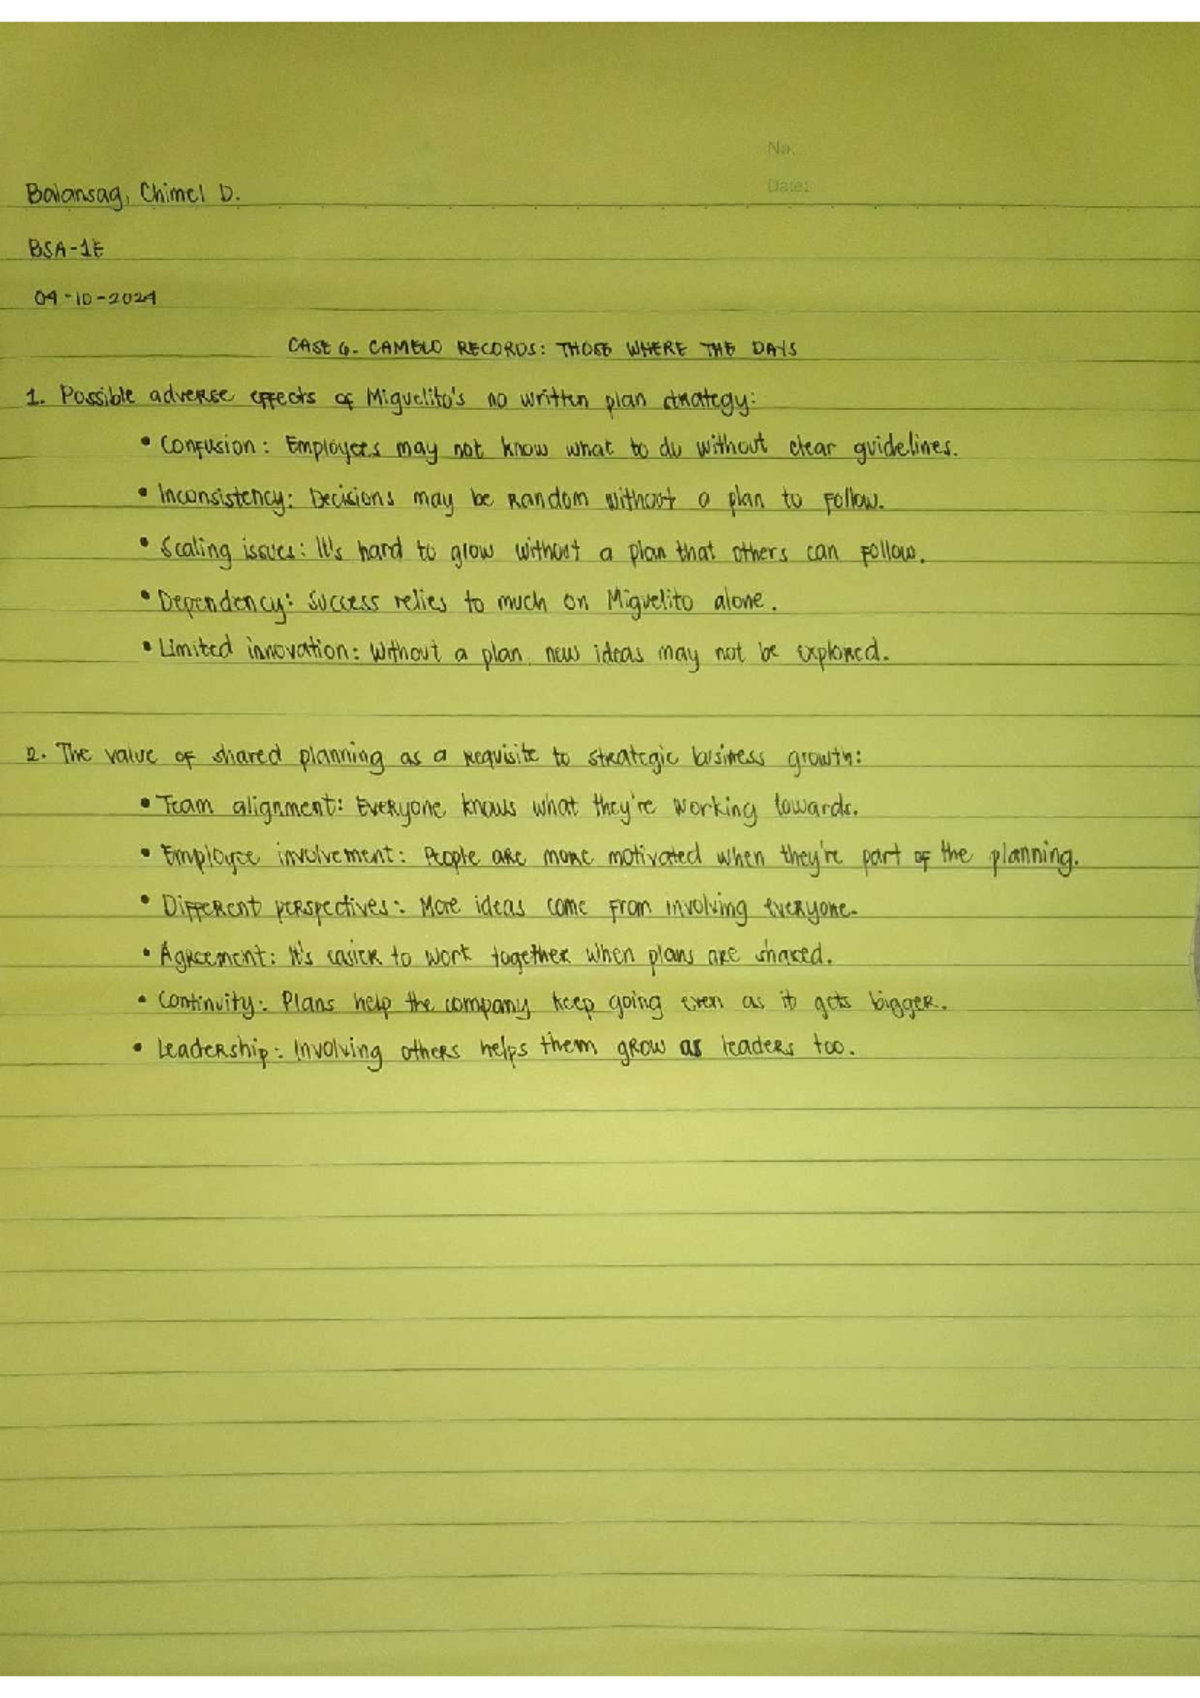 No.
Date:
Balansag, Chimel D.
BSA-1E
04-10-2024
CASE 6. CAMELO RECORDS: THOSE WHERE THE DAYS
1. Possible adverse effects of Miguelito's no written plan strategy:
• Confusion: Employees may not know what to do without clear guidelines.
• Inconsistency: Decisions may be random without a plan to follow.
• Scaling issues: It's hard to grow without a plan that others can follow.
• Dependency: Success relies to much on Miguelito alone.
• Limited innovation: Without a plan, new ideas may not be explored.
2. The value of shared planning as a requisite to strategic business growth:
• Team alignment: Everyone knows what they're working towards.
• Employee involvement: People are more motivated when they're part of the planning.
• Different perspectives: More ideas come from involving everyone.
• Agreement: It's easier to work together when plans are shared.
• Continuity: Plans help the company keep going even as it gets bigger.
• Leadership: Involving others helps them grow as leaders too.